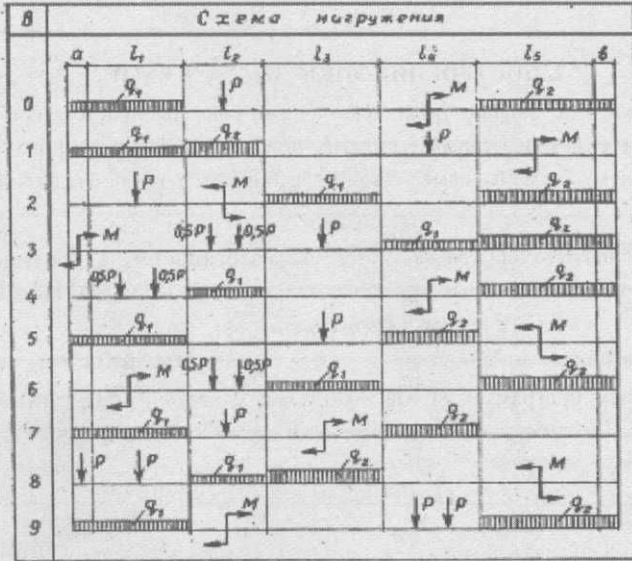 В Схема нагружения
a l₁ l₂ l₃ l₄ l₅ в
0 q₁ P M q₂
1 q₁ q₂ P M
2 P M q₁ q₂
3 M 0,5P 0,5P P q₁ q₂
4 0,5P 0,5P q₁ M q₂
5 q₁ P q₂ M
6 M 0,5P 0,5P q₁ q₂
7 q₁ P M q₂
8 P P q₁ q₂ M
9 q₁ M P P q₂